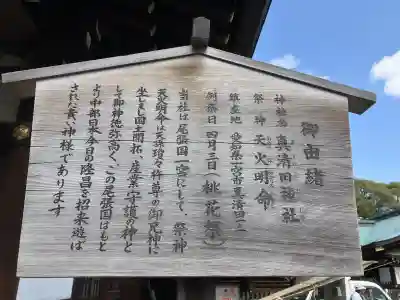 御由緒
神社名 真清田神社
祭神 天火明命
鎮座地 愛知県一宮市真清田一ノ二
例祭日 四月三日(桃花祭)
当社は尾張国一宮にして、祭神
天火明命は天孫瓊々杵尊の御兄神に
坐す。国土開拓、産業守護の神と
して御神徳弥高く、この尾張国はもと
より中部日本今日の隆昌を招来遊ば
された貴い神様であります